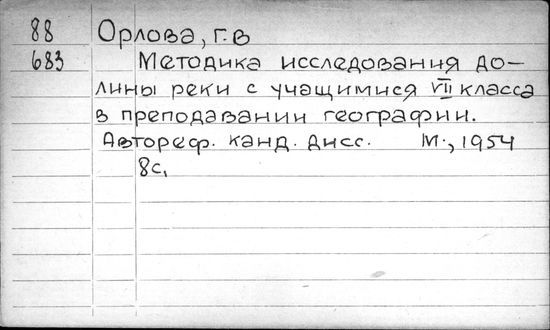 88 Орлова, Г.В
683 Методика исследования до-
лины реки с учащимися VII класса
в преподавании географии.
Автореф. канд. дисс. М., 1954
8с.